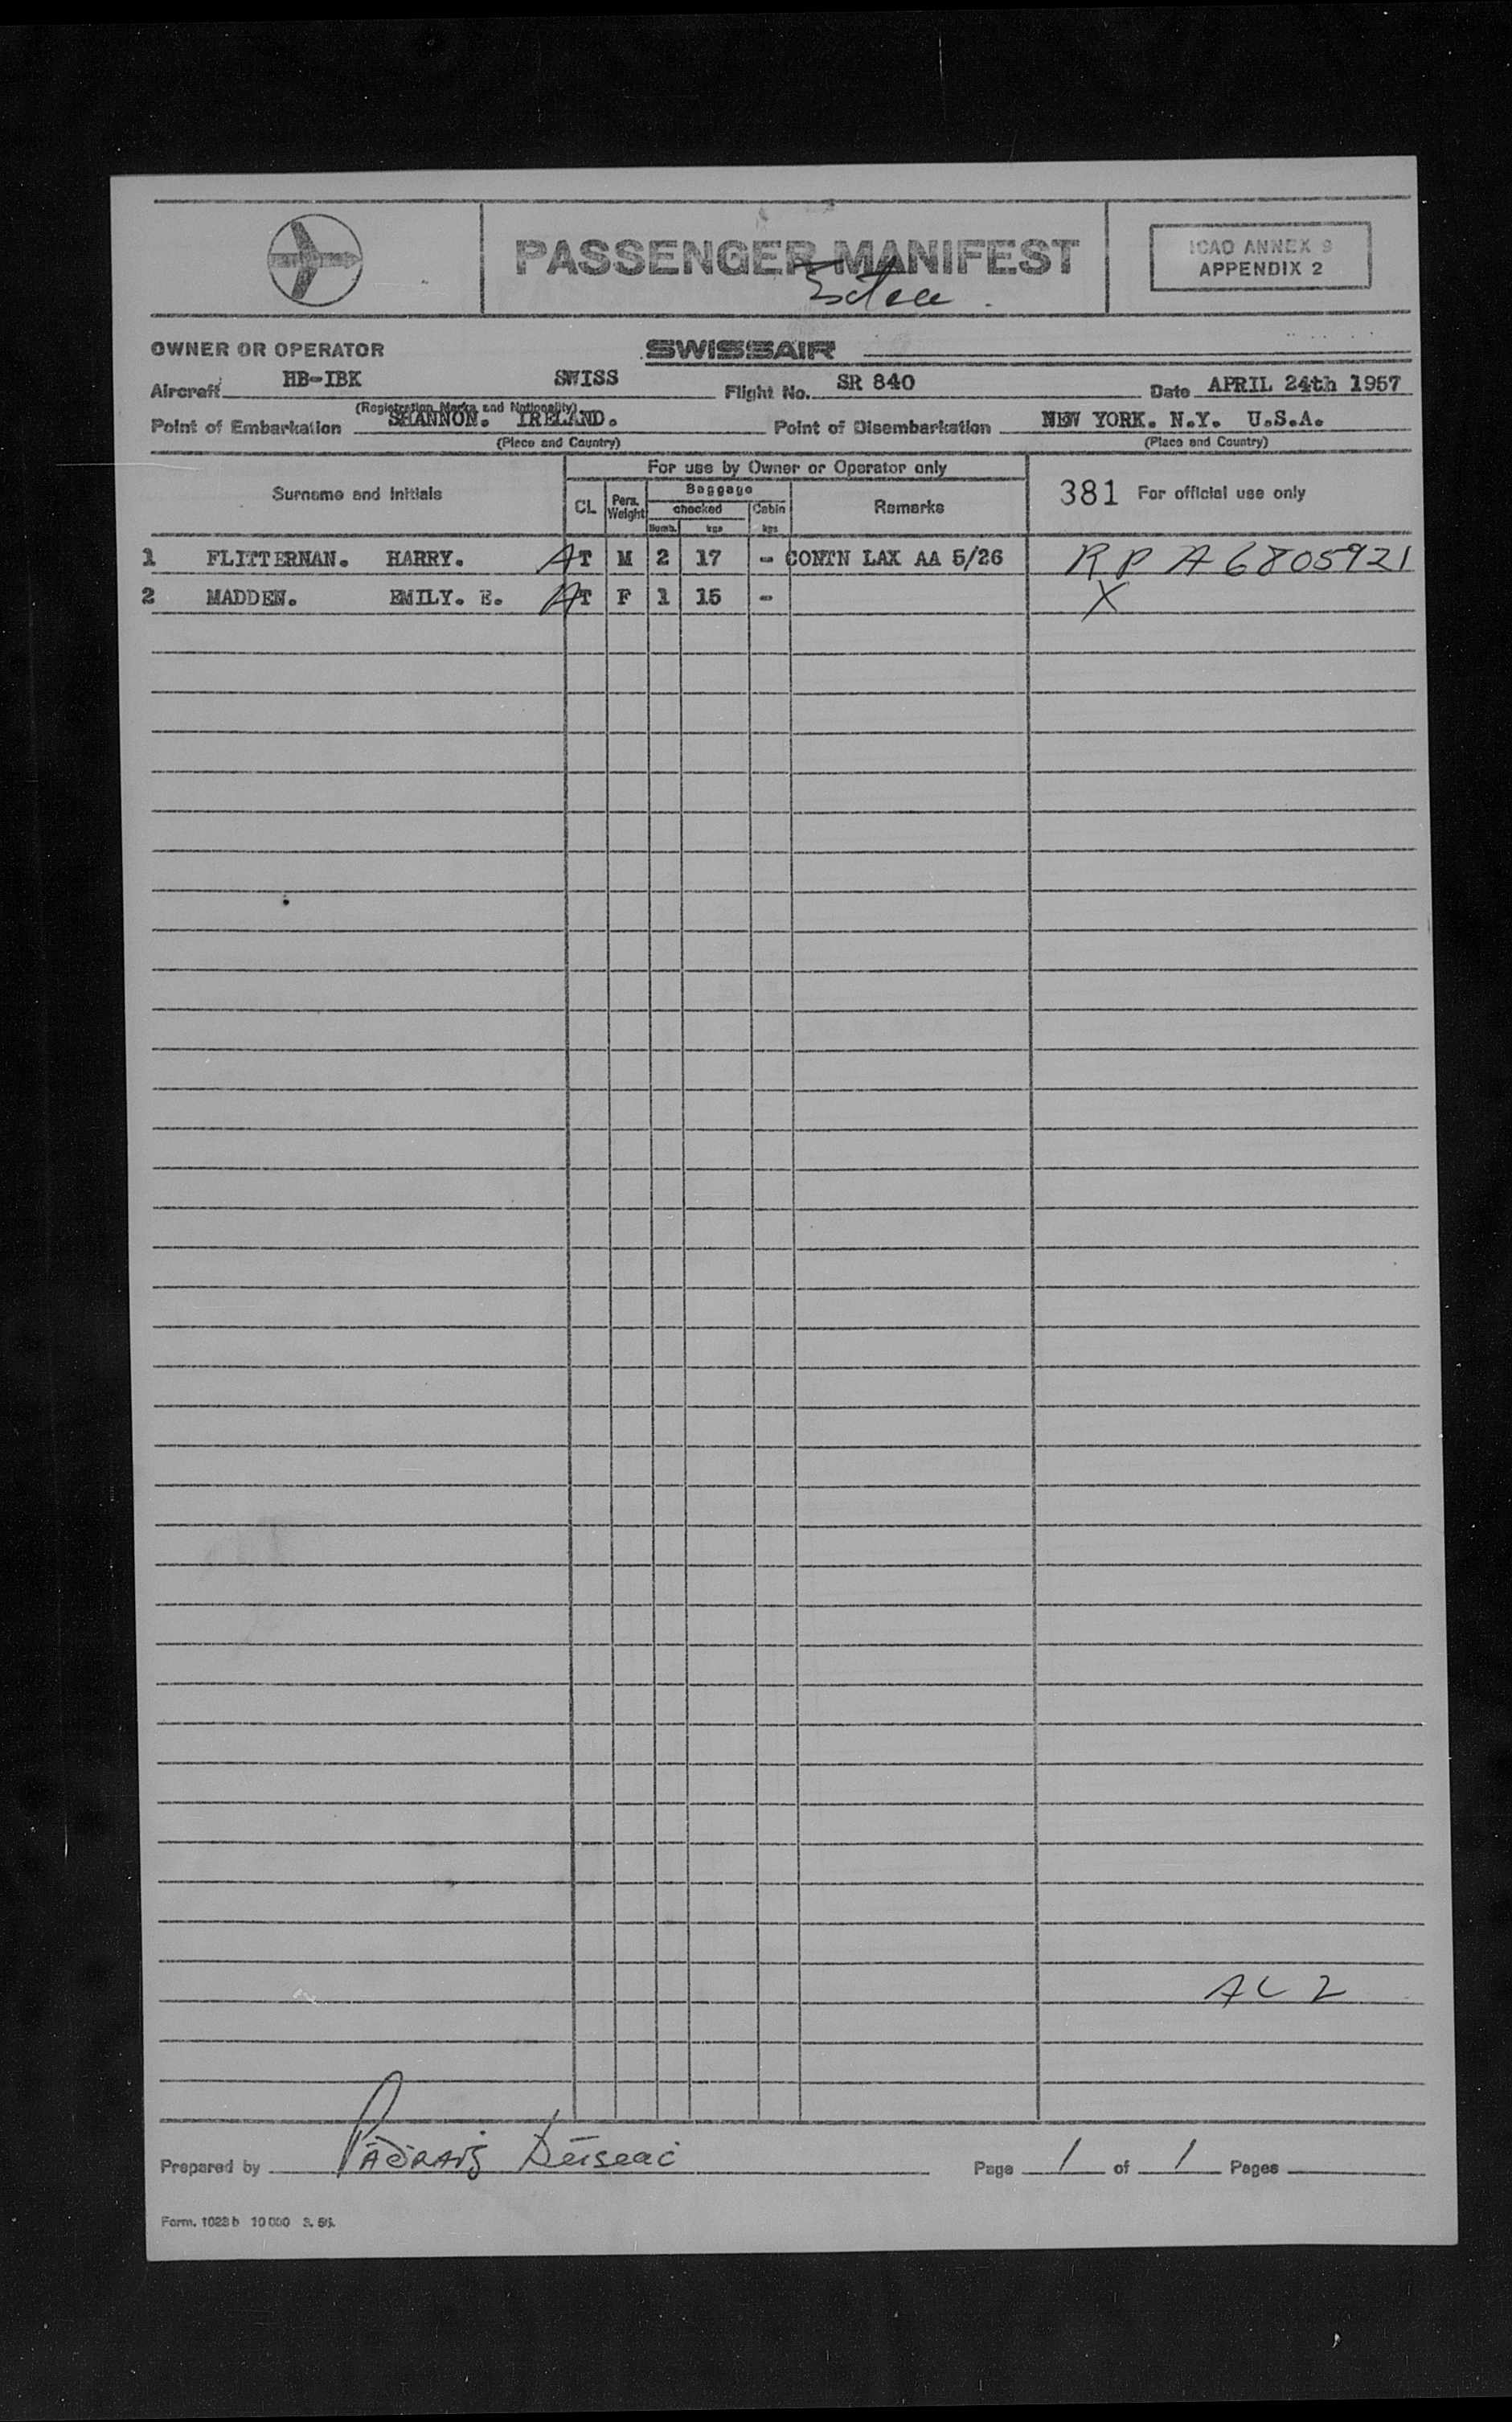 PASSENGER MANIFEST
ICAO ANNEX 9
APPENDIX 2
OWNER OR OPERATOR SWISSAIR
Aircraft HB-IBK SWISS Flight No. SR 840 Date APRIL 24th 1957
(Registration Marks and Nationality)
Point of Embarkation SHANNON. IRELAND. Point of Disembarkation NEW YORK. N.Y. U.S.A.
(Place and Country) (Place and Country)
For use by Owner or Operator only
Surname and Initials CL Pers. Weight Baggage checked Numb. kgs Cabin kgs Remarks 381 For official use only
1 FLITTERNAN. HARRY. A T M 2 17 - CONTN LAX AA 5/26 R P A 6805921
2 MADDEN. EMILY. E. A T F 1 15 - X
A L 2
Prepared by Pádraig Déiseac Page 1 of 1 Pages
Form. 1023 b 10 000 3. 56.